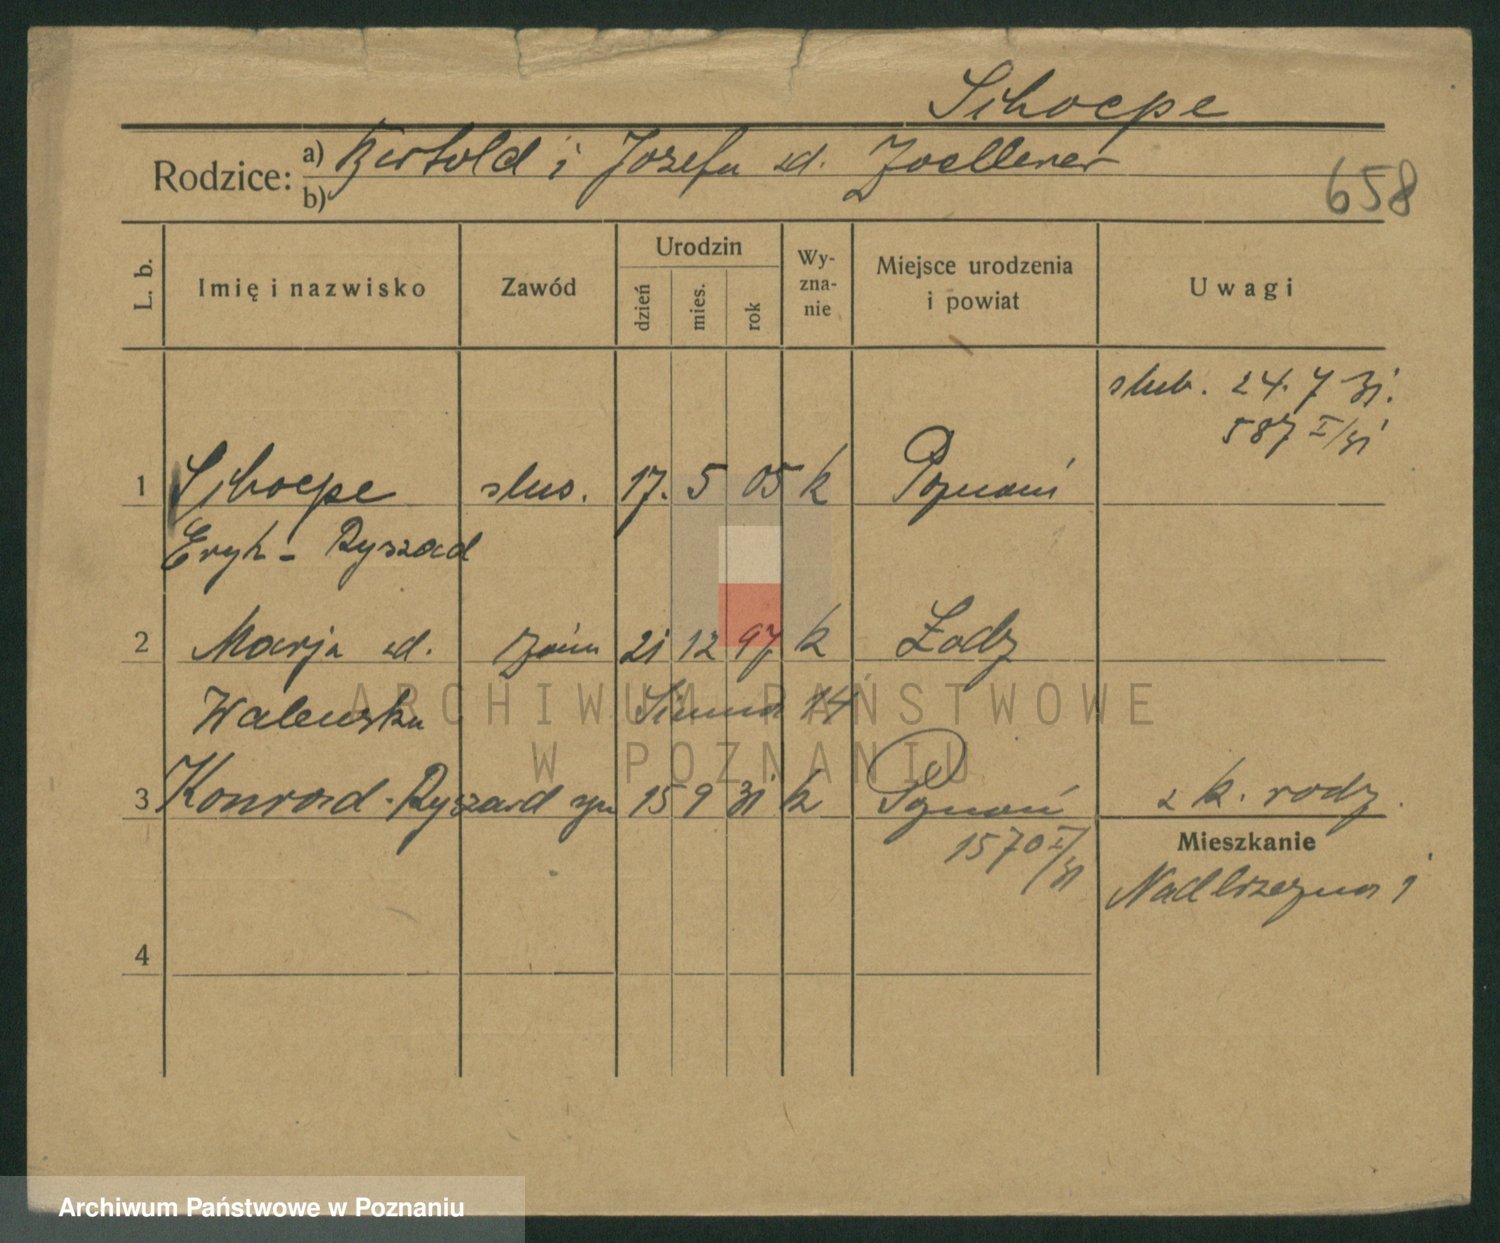 Schoepe
Rodzice: a) Bertold i Józefa zd. Zoellner
b)
658
L. b.
Imię i nazwisko
Zawód
Urodzin
dzień
mies.
rok
Wy-
zna-
nie
Miejsce urodzenia
i powiat
Uwagi
ślub. 24. 7 31.
587 I/31
1 Schoepe ślus. 17. 5 05 k Poznań
Eryk - Ryszard
2 Marja zd. żona 21 12 97 k Łodz
Walewska 14
3 Konrad-Ryszard syn 15 9 31 k Poznań z k. rodz.
1570 I/31
Mieszkanie
Nadbrzeżna 1
4
ARCHIWUM PAŃSTWOWE
W POZNANIU
Archiwum Państwowe w Poznaniu